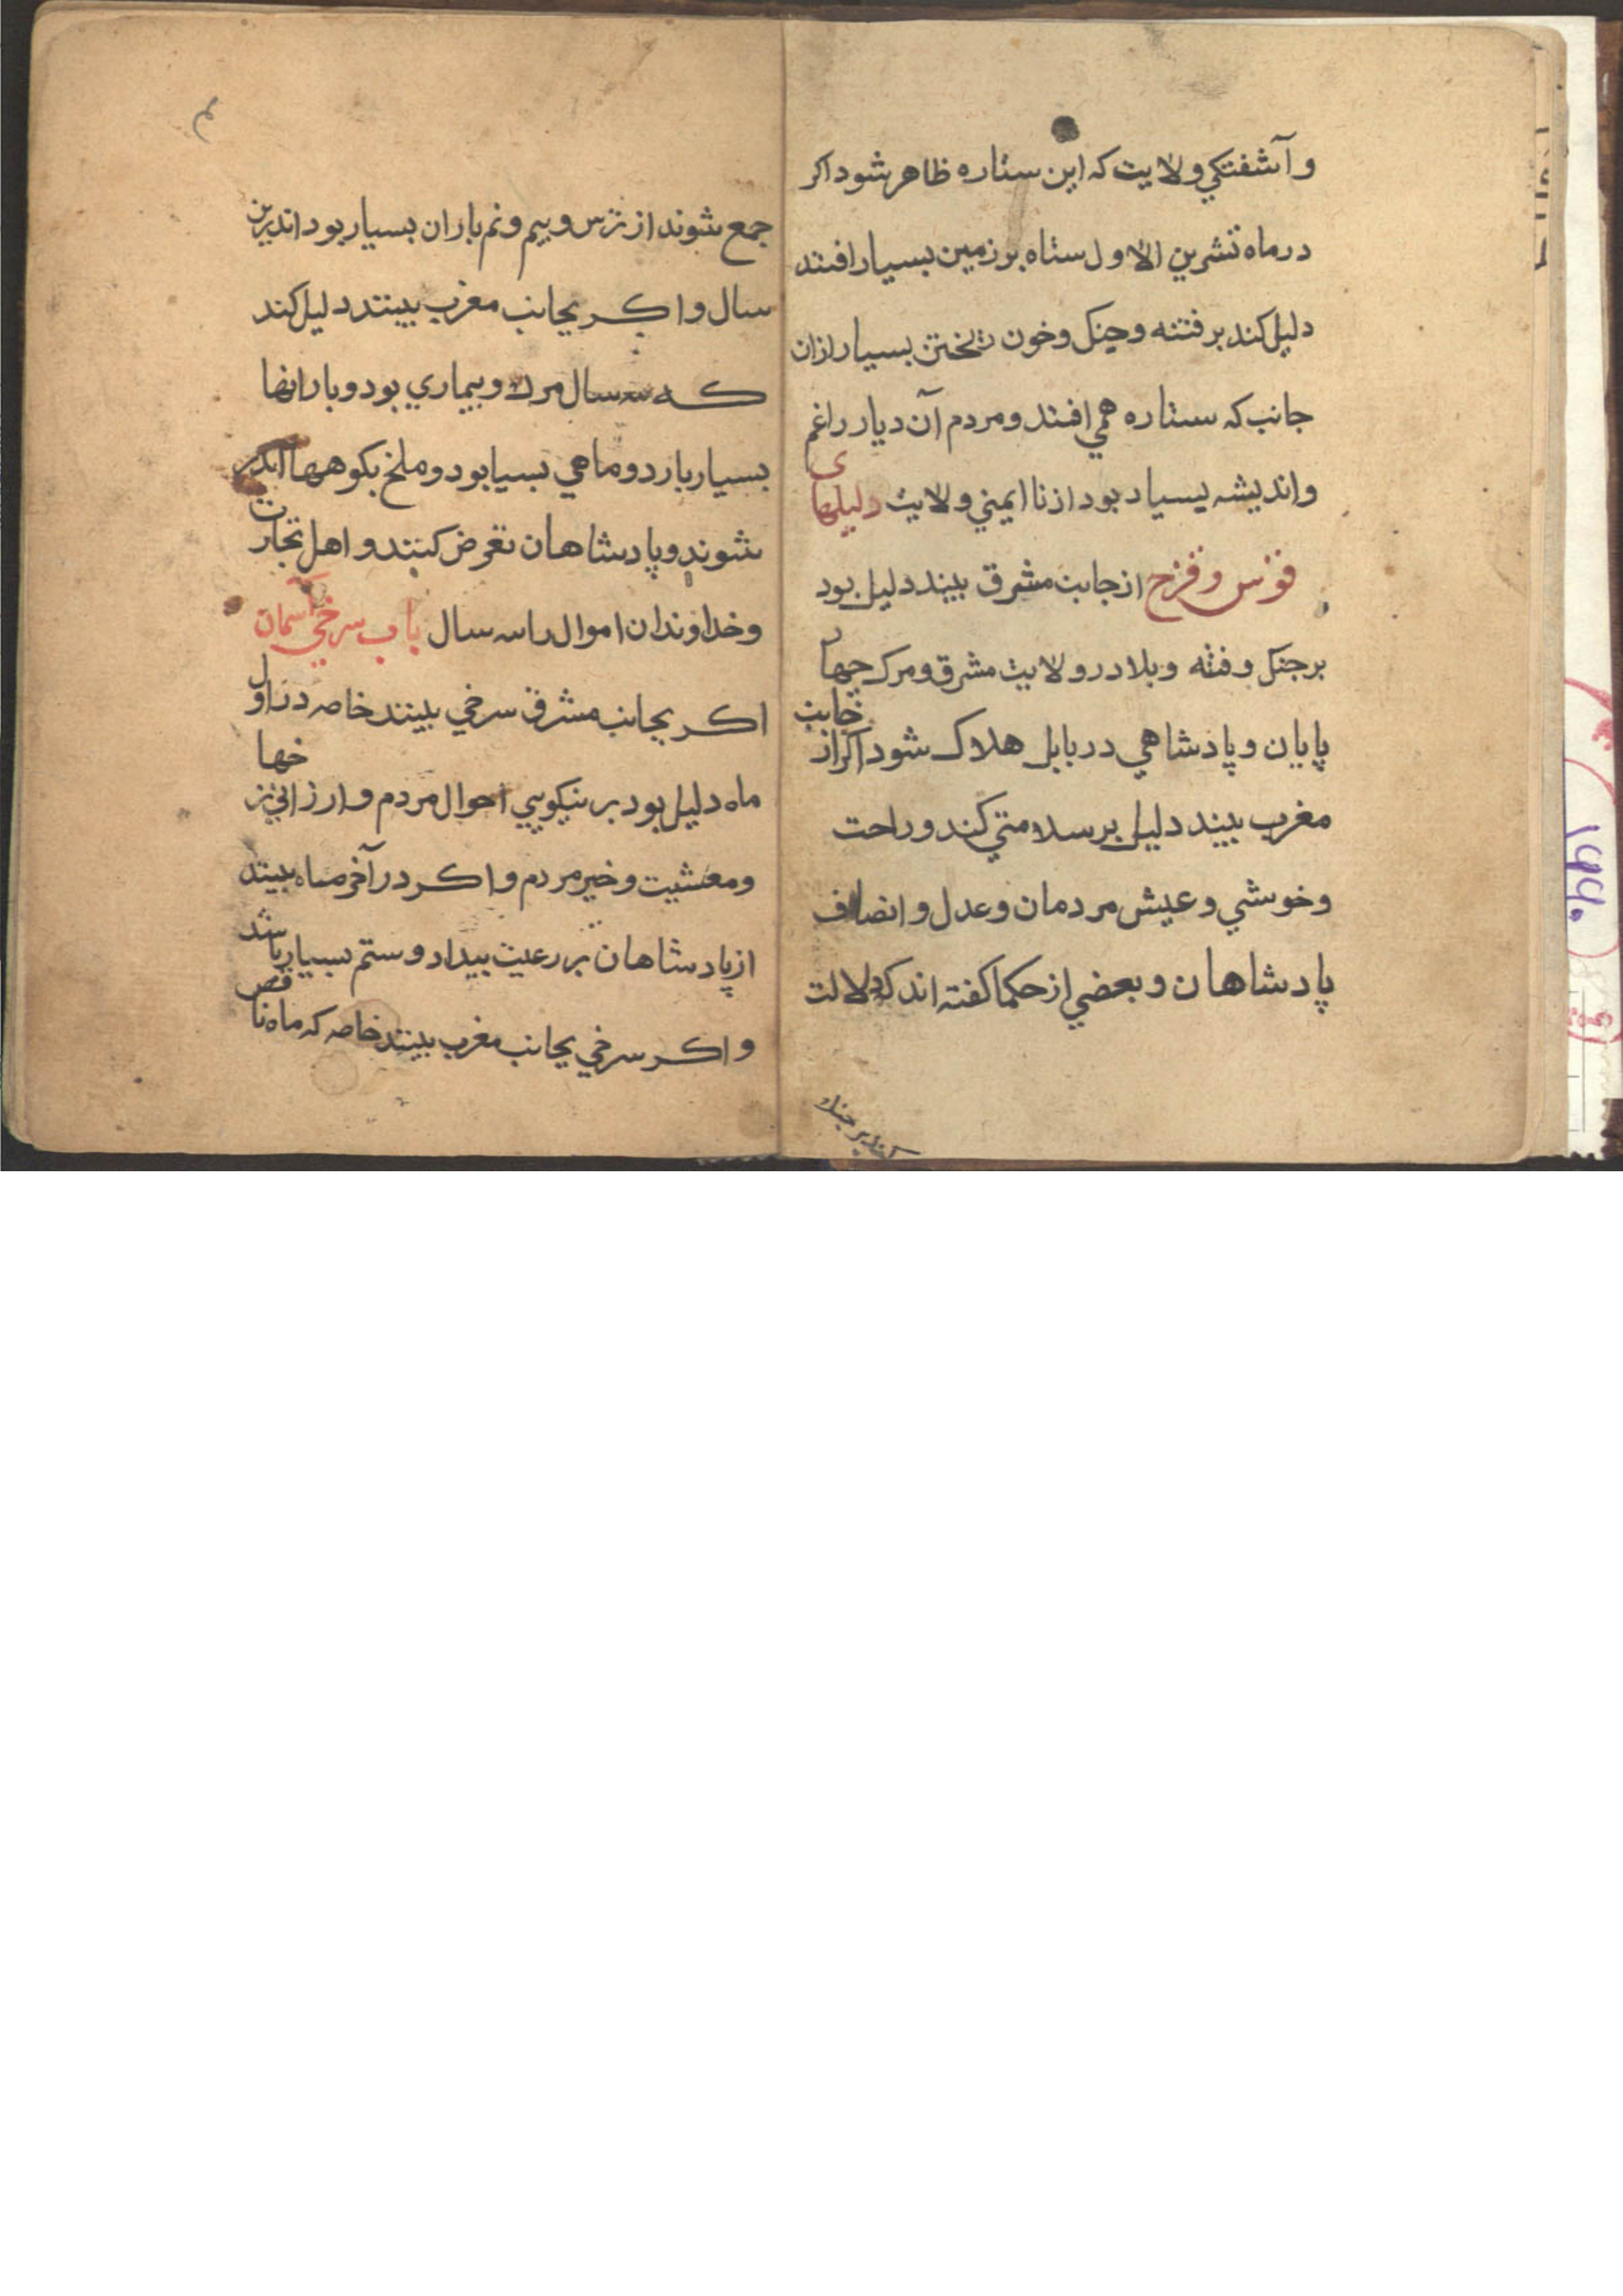 و آشفتكي ولايت كه اين ستاره ظاهر شود اكر
در ماه تشرين الاول ستاه بر زمين بسيار افتند
دليل كند بر فتنه و جنك و خون ريختن بسيار ازان
جانب كه ستاره همي افتند و مردم آن ديار را غم
و انديشه بسيار بود از نا ايمني ولايت دليلهاى
قوس و قزح از جانب مشرق بيند دليل بود
بر جنك و فتنه و بلا در ولايت مشرق و مرك جهار
پايان و پادشاهي در بابل هلاك شود اكر از جانب
مغرب بيند دليل بر سلامتي كند و راحت
و خوشي و عيش مردمان و عدل و انصاف
پادشاهان و بعضي از حكما كفته اند كه دلالت
كند بر جنك
م
جمع شوند از ترس و بيم و نم باران بسيار بود اندرين
سال و اكر بجانب مغرب بينند دليل كند
كه سه سال مرك و بيماري بود و بارانها
بسيار بارد و ماهي بسيا بود و ملخ بكوهها اندر
شوند و پادشاهان تعرض كنند و اهل تجارت
و خداوندان اموال را سه سال باب سرخي آسمان
اكر بجانب مشرق سرخي بينند خاصه در اول
ماه دليل بود بر نيكويي احوال مردم و ارزاني نرخها
و معشيت و خير مردم و اكر در آخر ماه بيند
از پادشاهان بر رعيت بيداد و ستم بسيار باشد
و اكر سرخي بجانب مغرب بينند خاصه كه ماه ناقص